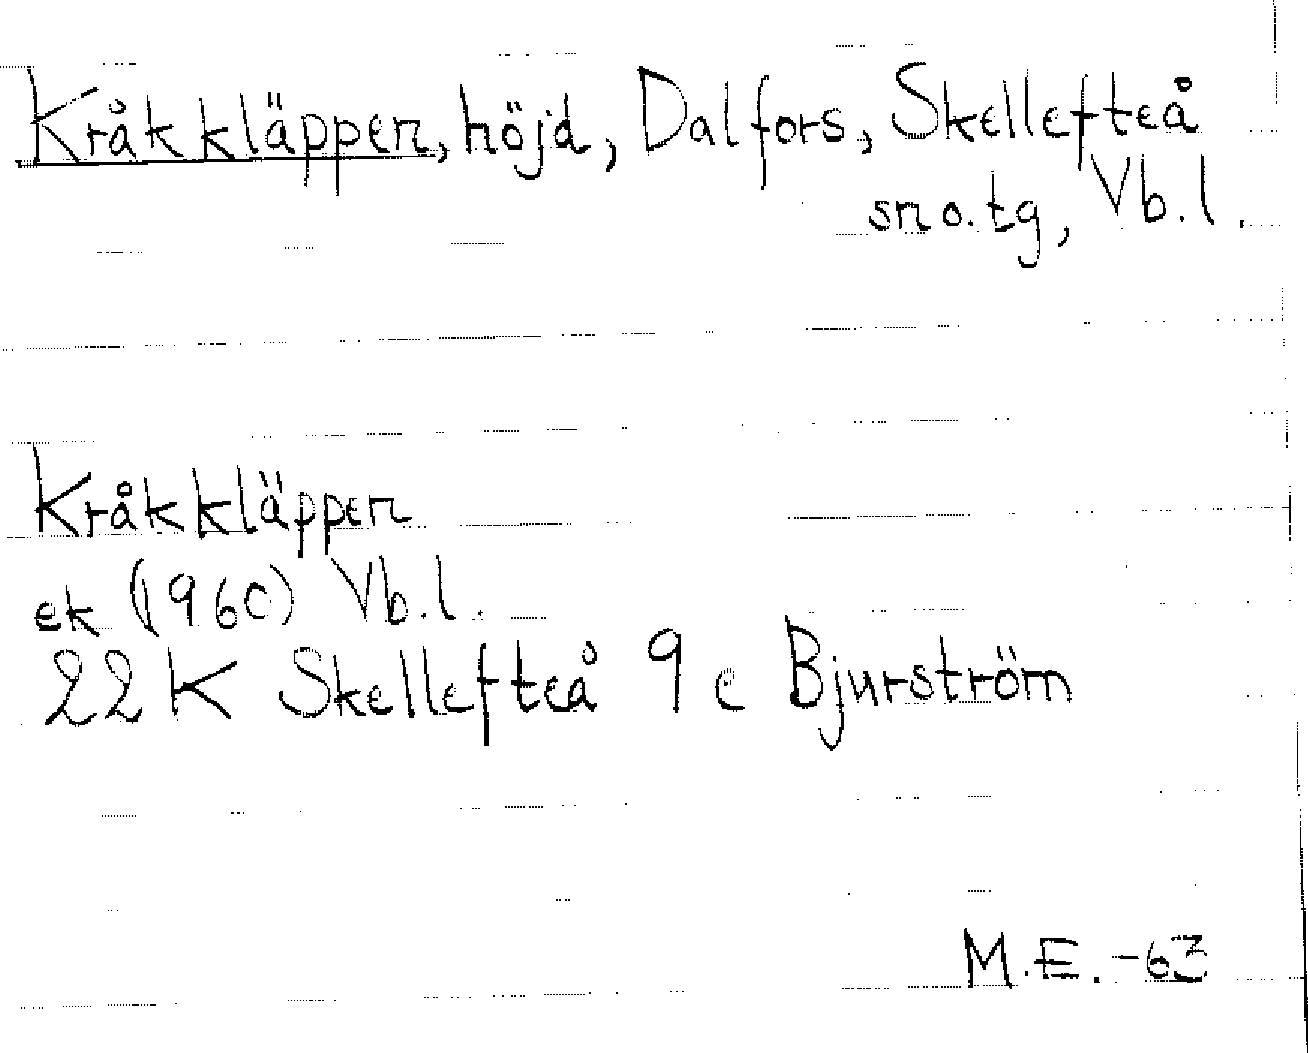 Kråkkläppen, höjd, Dalfors, Skellefteå
sn o. tg, Vb. l.
Kråkkläppen
ek (1960) Vb. l.
22 K Skellefteå 9 c Bjurström
M.E. -63